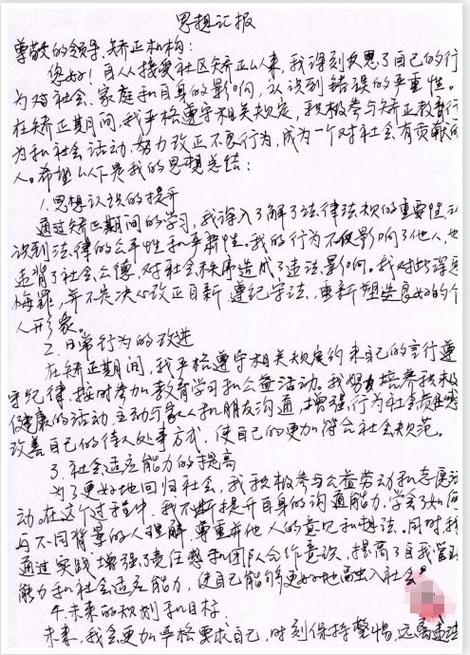 思想汇报
尊敬的领导、矫正机构：
您好！自从接受社区矫正以来，我深刻反思了自己的行
为对社会、家庭和自身的影响，认识到错误的严重性。
在矫正期间，我严格遵守相关规定，积极参与矫正教育行
为和社会活动，努力改正不良行为，成为一个对社会有贡献的
人。希望以下是我的思想总结：
1.思想认识的提升
通过矫正期间的学习，我深入了解了法律法规的重要性，认
识到法律的公平性和严肃性。我的行为不仅影响了他人，也
违背了社会公德，对社会秩序造成了违法影响。我对此深感
悔罪，并下定决心改正自新，遵纪守法，重新塑造良好的个
人形象。
2.日常行为的改进
在矫正期间，我严格遵守相关规定约束自己的言行遵
守纪律，按时参加教育学习和公益活动。我努力培养积极
健康的活动，主动与家人和朋友沟通，增强行为社会责任感
改善自己的待人处事方式，使自己的更加符合社会规范。
3.社会适应能力的提高
为了更好地回归社会，我积极参与公益劳动和志愿活
动。在这个过程中，我不断提升自身的沟通能力，学会了如何
与不同背景的人理解，尊重并他人的意见和想法。同时我
通过实践增强了责任感和团队合作意识，提高了自我管理
能力和社会适应能力，使自己能够更好地融入社会。
4.未来的规划和目标：
未来，我会更加严格要求自己，时刻保持警惕，远离违法